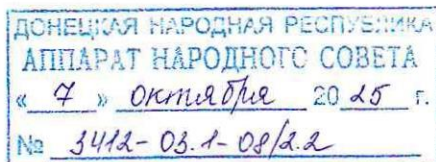 ДОНЕЦКАЯ НАРОДНАЯ РЕСПУБЛИКА
АППАРАТ НАРОДНОГО СОВЕТА
« 7 » октября 20 25 г.
№ 3412-03.1-08/2.2